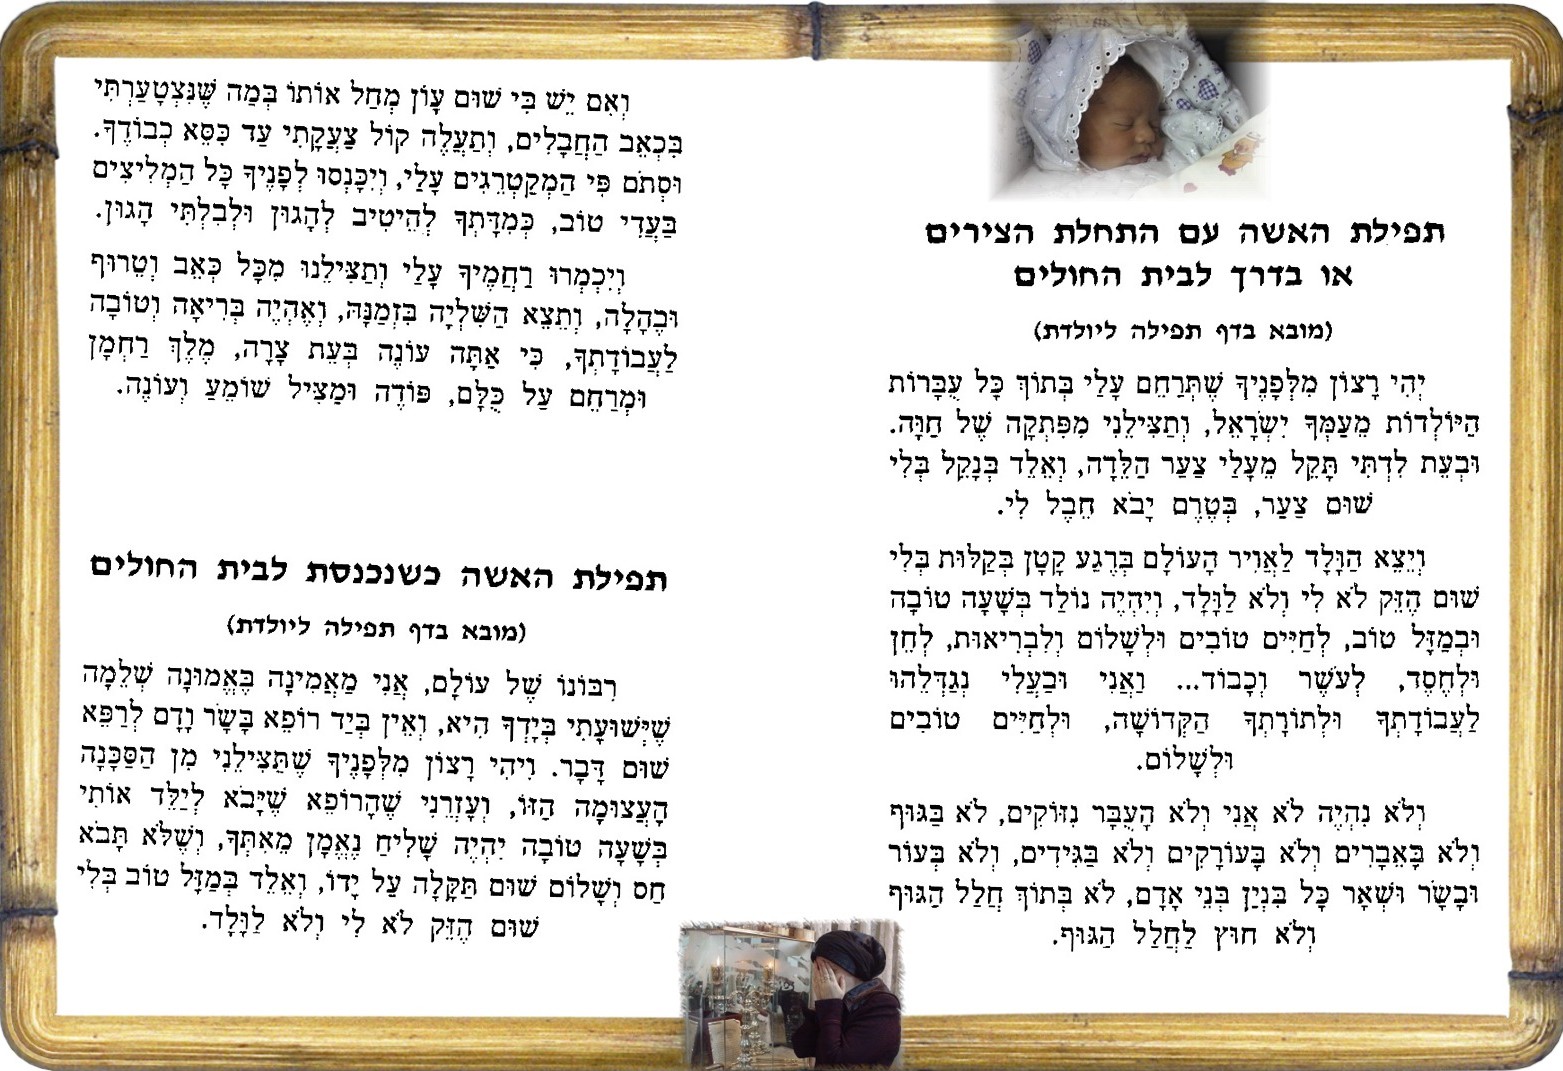 תפילת האשה עם התחלת הצירים
או בדרך לבית החולים
(מובא בדף תפילה ליולדת)
יְהִי רָצוֹן מִלְּפָנֶיךָ שֶׁתְּרַחֵם עָלַי בְּתוֹךְ כָּל עֻבָּרוֹת
הַיּוֹלְדוֹת מֵעַמְּךָ יִשְׂרָאֵל, וְתַצִּילֵנִי מִפִּתְקָהּ שֶׁל חַוָּה.
וּבְעֵת לִדְתִּי תָּקֵל מֵעָלַי צַעַר הַלֵּדָה, וְאֵלֵד בְּנָקֵל בְּלִי
שׁוּם צַעַר, בְּטֶרֶם יָבֹא חֵבֶל לִי.
וְיֵצֵא הַוָּלָד לַאֲוִיר הָעוֹלָם בְּרֶגַע קָטָן בְּקַלּוּת בְּלִי
שׁוּם הֶזֵּק לֹא לִי וְלֹא לַוָּלָד, וְיִהְיֶה נוֹלַד בְּשָׁעָה טוֹבָה
וּבְמַזָּל טוֹב, לְחַיִּים טוֹבִים וּלְשָׁלוֹם וְלִבְרִיאוּת, לְחֵן
וּלְחֶסֶד, לְעֹשֶׁר וְכָבוֹד... וַאֲנִי וּבַעְלִי נְגַדְּלֵהוּ
לַעֲבוֹדָתְךָ וּלְתוֹרָתְךָ הַקְּדוֹשָׁה, וּלְחַיִּים טוֹבִים
וּלְשָׁלוֹם.
וְלֹא נִהְיֶה לֹא אֲנִי וְלֹא הָעֻבָּר נִזּוֹקִים, לֹא בַּגּוּף
וְלֹא בָּאֵבָרִים וְלֹא בָּעוֹרָקִים וְלֹא בַּגִּידִים, וְלֹא בְּעוֹר
וּבָשָׂר וּשְׁאָר כָּל בִּנְיַן בְּנֵי אָדָם, לֹא בְּתוֹךְ חֲלַל הַגּוּף
וְלֹא חוּץ לַחֲלַל הַגּוּף.
וְאִם יֵשׁ בִּי שׁוּם עָוֹן מְחַל אוֹתוֹ בְּמַה שֶּׁנִּצְטָעַרְתִּי
בִּכְאֵב הַחֲבָלִים, וְתַעֲלֶה קוֹל צַעֲקָתִי עַד כִּסֵּא כְבוֹדֶךָ.
וּסְתֹם פִּי הַמְקַטְרְגִים עָלַי, וְיִכָּנְסוּ לְפָנֶיךָ כָּל הַמְלִיצִים
בַּעֲדִי טוֹב, כְּמִדָּתְךָ לְהֵיטִיב לְהָגוּן וּלְבִלְתִּי הָגוּן.
וְיִכְמְרוּ רַחֲמֶיךָ עָלַי וְתַצִּילֵנוּ מִכָּל כְּאֵב וְטֵרוּף
וּבֶהָלָה, וְתֵצֵא הַשִּׁלְיָה בִּזְמַנָּהּ, וְאֶהְיֶה בְּרִיאָה וְטוֹבָה
לַעֲבוֹדָתְךָ, כִּי אַתָּה עוֹנֶה בְּעֵת צָרָה, מֶלֶךְ רַחְמָן
וּמְרַחֵם עַל כֻּלָּם, פּוֹדֶה וּמַצִּיל שׁוֹמֵעַ וְעוֹנֶה.
תפילת האשה כשנכנסת לבית החולים
(מובא בדף תפילה ליולדת)
רִבּוֹנוֹ שֶׁל עוֹלָם, אֲנִי מַאֲמִינָה בֶּאֱמוּנָה שְׁלֵמָה
שֶׁיְּשׁוּעָתִי בְּיָדְךָ הִיא, וְאֵין בְּיַד רוֹפֵא בָּשָׂר וָדָם לְרַפֵּא
שׁוּם דָּבָר. וִיהִי רָצוֹן מִלְּפָנֶיךָ שֶׁתַּצִּילֵנִי מִן הַסַּכָּנָה
הָעֲצוּמָה הַזּוֹ, וְעָזְרֵנִי שֶׁהָרוֹפֵא שֶׁיָּבֹא לְיַלֵּד אוֹתִי
בְּשָׁעָה טוֹבָה יִהְיֶה שָׁלִיחַ נֶאֱמָן מֵאִתְּךָ, וְשֶׁלֹּא תָּבֹא
חַס וְשָׁלוֹם שׁוּם תַּקָּלָה עַל יָדוֹ, וְאֵלֵד בְּמַזָּל טוֹב בְּלִי
שׁוּם הֶזֵּק לֹא לִי וְלֹא לַוָּלָד.